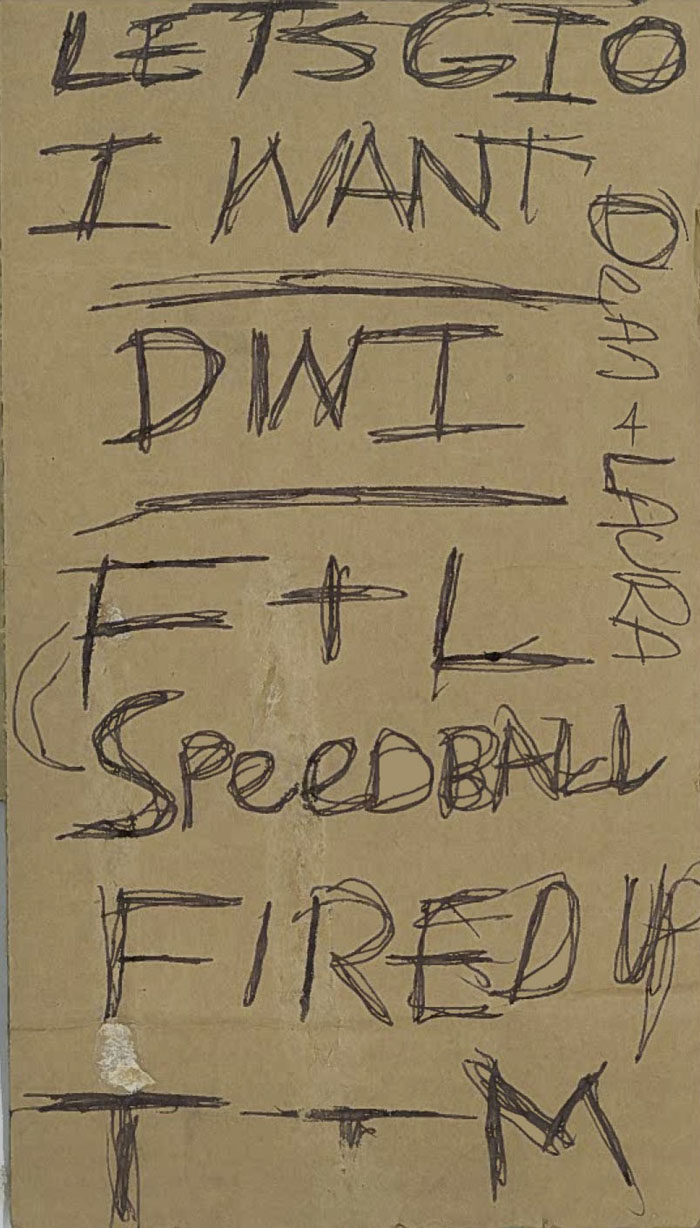 LETS GO
I WANT
DWI
F + L
SPeeDBALL
FIRED UP
T - M
DeAn + LAURA